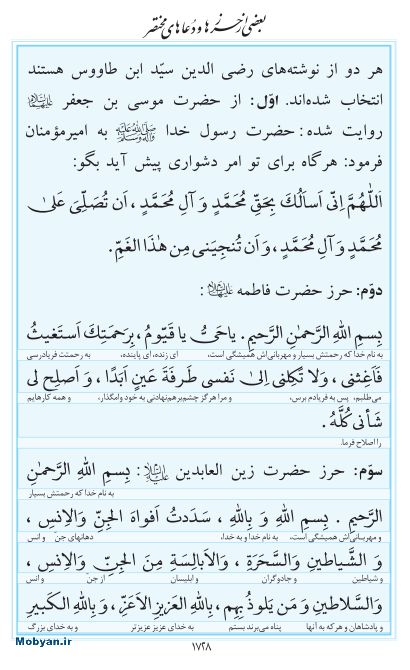 بعضی از حرزها و دعاهای مختصر
هر دو از نوشته‌های رضی الدین سیّد ابن طاووس هستند
انتخاب شده‌اند. اوّل: از حضرت موسی بن جعفر علیهما السلام
روایت شده: حضرت رسول خدا صلی الله علیه وآله به امیرمؤمنان
فرمود: هرگاه برای تو امر دشواری پیش آید بگو:
اَللّٰهُمَّ اِنّی اَسأَلُكَ بِحَقِّ مُحَمَّدٍ وَ آلِ مُحَمَّدٍ، اَن تُصَلِّیَ عَلیٰ
مُحَمَّدٍ وَ آلِ مُحَمَّدٍ، وَ اَن تُنجِیَنی مِن هٰذَا الغَمِّ.
دوّم: حرز حضرت فاطمه علیها السلام :
بِسمِ اللّٰهِ الرَّحمٰنِ الرَّحیمِ. یا حَیُّ یا قَیّومُ، بِرَحمَتِكَ اَستَغیثُ
به نام خدا که رحمتش بسیار و مهربانی‌اش همیشگی است، ای زنده، ای پاینده، به رحمتت فریادرسی
فَاَغِثنی، وَلا تَكِلنی اِلیٰ نَفسی طَرفَةَ عَینٍ اَبَدًا، وَ اَصلِح لی
می‌طلبم، پس به فریادم برس، و مرا هرگز چشم برهم‌نهادنی به خود وامگذار، و همه کارهایم
شَأنی كُلَّهُ.
را اصلاح فرما.
سوّم: حرز حضرت زین العابدین علیه السلام : بِسمِ اللّٰهِ الرَّحمٰنِ
به نام خدا که رحمتش بسیار
الرَّحیمِ. بِسمِ اللّٰهِ وَ بِاللّٰهِ، سَدَدتُ اَفواهَ الجِنِّ وَالاِنسِ،
و مهربانی‌اش همیشگی است، به نام خدا و به خدا، دهانهای جن و انس
وَ الشَّیاطینِ وَالسَّحَرَةِ، وَالاَبالِسَةِ مِنَ الجِنِّ وَالاِنسِ،
و شیاطین و جادوگران و ابلیسان از جن و انس
وَالسَّلاطینِ وَ مَن یَلوذُ بِهِم، بِاللّٰهِ العَزیزِ الاَعَزِّ، وَ بِاللّٰهِ الكَبیرِ
و پادشاهان و هرکه به آنها پناه می‌برند بستم به خدای عزیز عزیزتر و به خدای بزرگ
۱۷۲۸
Mobyan.ir